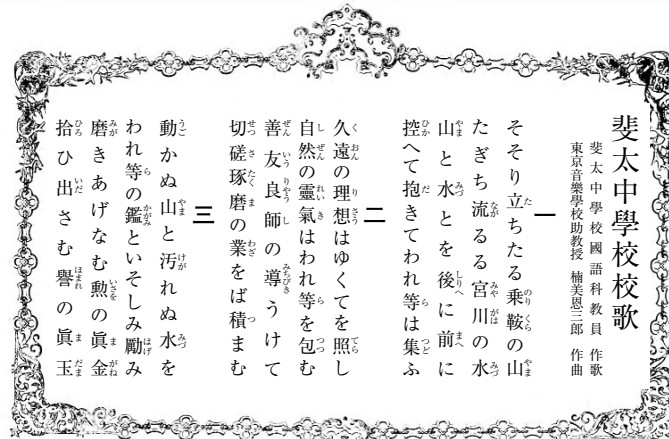 斐太中學校校歌
斐太中學校國語科教員 作歌
東京音樂學校助教授 楠美恩三郎 作曲
一
そそり立ちたる乘鞍の山
たぎち流るる宮川の水
山と水とを後に前に
控へて抱きてわれ等は集ふ
二
久遠の理想はゆくてを照し
自然の靈氣はわれ等を包む
善友良師の導うけて
切磋琢磨の業をば積まむ
三
動かぬ山と汚れぬ水を
われ等の鑑といそしみ勵み
磨きあげなむ勲の眞金
拾ひ出さむ譽の眞玉